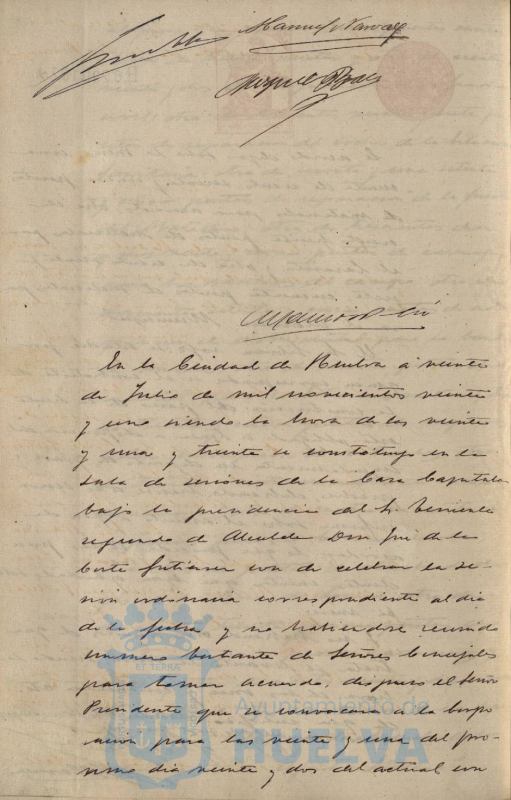 Manuel Narvaez
Miguel
En la Ciudad de Huelva á veinte
de Julio de mil novecientos veinte
y uno siendo la hora de las veinte
y una y treinta se constituyo en la
sala de sesiones de la Casa Capitular
bajo la presidencia del Sr. Teniente
segundo de Alcalde Don José de la
Corte Gutierrez con de celebrar la se-
sión ordinaria correspondiente al dia
de la fecha y no habiendose reunido
numero bastante de Señores Concejales
para tomar acuerdo, dispuso el Señor
Presidente que se convocara a la Corpo
ración para las veinte y una del pro-
ximo dia veinte y dos del actual con
ET TERRAE
Ayuntamiento de
HUELVA